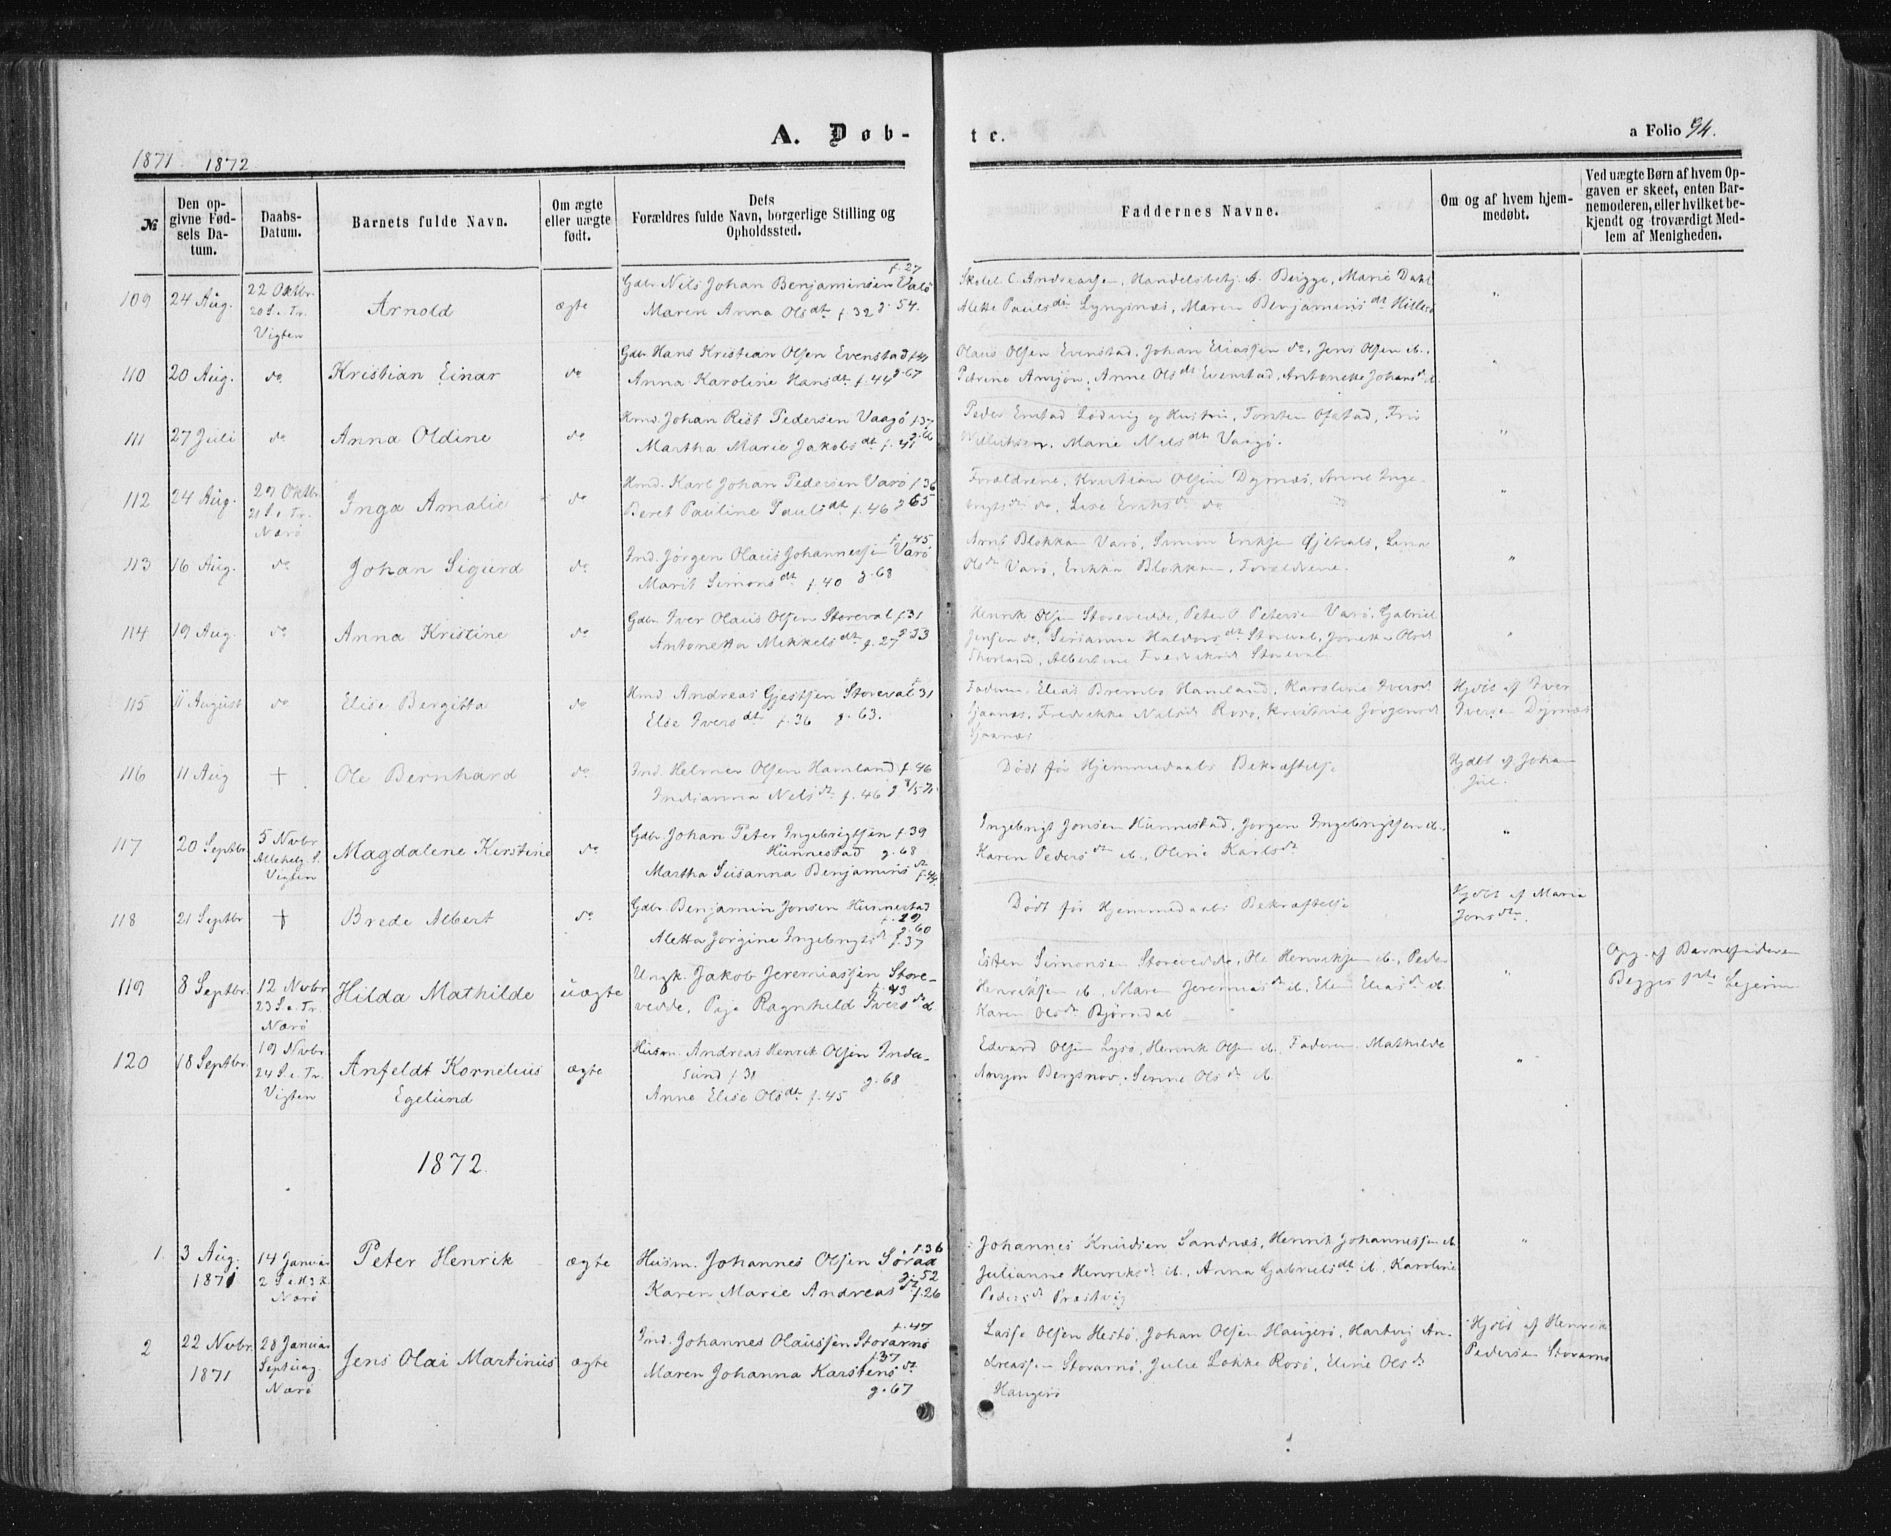 A. Døb-
te.
a Folio 94.
1871 1872
№
Den op-
givne Fød-
sels Da-
tum.
Daabs-
Datum.
Barnets fulde Navn.
Om ægte
eller uægte
født.
Dets
Forældres fulde Navn, borgerlige Stilling og
Opholdssted.
Faddernes Navne.
Om og af hvem hjem-
medøbt.
Ved uægte Børn af hvem Op-
gaven er skeet, enten Bar-
nemoderen, eller hvilket be-
kjendt og troværdigt Med-
lem af Menigheden.
109
24 Aug.
22 Oktbr.
20 S. e. Tr.
Vigten
Arnold
ægte
f. 27
Gdbr Nils Johan Benjaminsen Valø
Maren Anna Olsdt f. 32 g. 54.
Skolel. C. Andreassen, Handelsbetj. A. Brigge, Marie Dahl
Alette Paulsdt Lyngsnæs, Maren Benjaminsdt
"
110
20 Aug.
do
Kristian Einar
do
Gdbr Hans Kristian Olsen Evenstad f. 41
Anna Karoline Hansdt f. 44 g. 67
Olaus Olsen Evenstad, Johan Eliassen do, Jens Olsen ib.,
Petrine Amsjøn, Anne Olsdt Evenstad, Antonette Johansd ib.
"
111
27 Juli
do
Anna Oldine
do
Hmd. Johan Rist Pedersen Vaagø f. 37
Martha Marie Jakobsdt f. 41 g. 66
Peder Lodvig og Hustru, Torsten Ofstad,
Marie Nelsdt Vaagø.
"
112
24 Aug.
29 Oktbr.
21 S. e. Tr.
Nærø
Inga Amalie
do
Hmd. Karl Johan Pedersen Varø f. 36
Beret Pauline Paulsdt f. 46 g. 65
Forældrene, Kristian Olsen Dymæs, Anne Inge-
brigtsdt do, Lise Eriksdt do
"
113
16 Aug.
do
Johan Sigurd
do
f. 45
Ind. Jørgen Olaus Johannessen Varø
Marit Simonsdt f. 40 g. 68
Arnt Blokkan Varø, Simon Eriksen Gjetvals, Lina
Olsdt Varø, Erikka Blokkan, Forældrene.
"
114
19 Aug.
do
Anna Kristine
do
Gdbr. Iver Olaus Olsen Storeval f. 31
Antonetta Mikkelsdt f. 27 g. 53
Henrik Olsen Storevedde, Peter O Petersen Varø, Gabriel
Jensen do, Serianna Haldorsdt Storeval, Jonetta Olsd
Thorland, Albertine Fredriksd Storeval
"
115
11 August
do
Elise Bergitta
do
Hmd Andreas Gjestsen Storeval f. 31
Else Iversdt f. 36 g. 63.
Faderen, Elias Brembo Hamland, Karoline Iversd
Gaanæs, Fredrikke Nilsd Rosø, Kristine Jørgensd
Gaanæs
Hjdbt af Iver
Iversen Dymæs
116
11 Aug
+
Ole Bernhard
do
Ind. Helmer Olsen Hamland f. 46
Indianna Nelsdt f. 46 g 8/5 71.
Dødt før Hjemmedaabs Bekræftelse
Hjdbt af Johan
Jul.
117
20 Septbr.
5 Novbr
Allehelg. S.
Vigten
Magdalene Kirstine
do
Gdbr. Johan Peter Ingebrigtsen f. 39
Hunnestad g. 68
Martha Susanna Benjaminsdt f. 44.
Ingebrigt Jonsen Hunnestad, Jørgen Ingebrigtsen ib.
Karen Pedersdt ib., Oline Karlsdt
"
118
21 Septbr
+
Brede Albert
do
Gdbr. Benjamin Jonsen Hunnestad
f. 29
g. 60
Aletta Jørgine Ingebrigtsd f. 37
Dødt før Hjemmedaabs Bekræftelse
Hjdbt af Maria
Jonsdtr.
119
8 Septbr.
12 Novbr
23 S. e. Tr.
Nærø
Hilda Mathilde
uægte
Ungk. Jakob Jeremiassen Store-
f. 43
vedde, Pige Ragnhild Iversdt
Esten Simonsen Storevedde, Ole Henriksen ib., Peder
Henriksen ib., Maren Jeremiasdt ib., Elen Eliasdt ib
Karen Olsdt Bjørndal
"
Opg. af Barnefaderen
Begges 1ste Lejerm
120
18 Septbr.
19 Novbr.
24 S. e. Tr.
Vigten
Anfeldt Kornelius
Egelund
ægte
Husm. Andreas Henrik Olsen Inder-
sund f. 31 g. 68
Anne Elise Olsdt f. 45
Edvard Olsen Lysø, Henrik Olsen ib., Faderen, Mathilde
Amzjøn Bergsnov, Sinne Olsdt ib.
"
1872.
1.
3 Aug.
1871
14 Januar
2 S. e. H. 3 K.
Nærø
Peter Henrik
ægte
f. 36
Husm. Johannes Olsen Søraa
g. 52
Karen Marie Andreasdt f. 26
Johannes Knudsen Sandnæs, Henrik Johannessen ib
Julianne Henriksdt ib., Anna Gabrielsdt ib., Karoline
Pedersdt Præstvig
"
2
22 Novbr.
1871
28 Januar
Septuag.
Nærø
Jens Olai Martinus
ægte
f. 47
Ind. Johannes Olaussen Storarnø
f. 37
Maren Johanna Karstensdt
g. 67
Lasse Olsen Hestø, Johan Olsen Haugerø, Hartvig An-
dreassen Storarnø, Julie Løkke Rosø, Eline Olsdt
Haugerø
Hjdbt af Henrik
Pedersen Storarnø